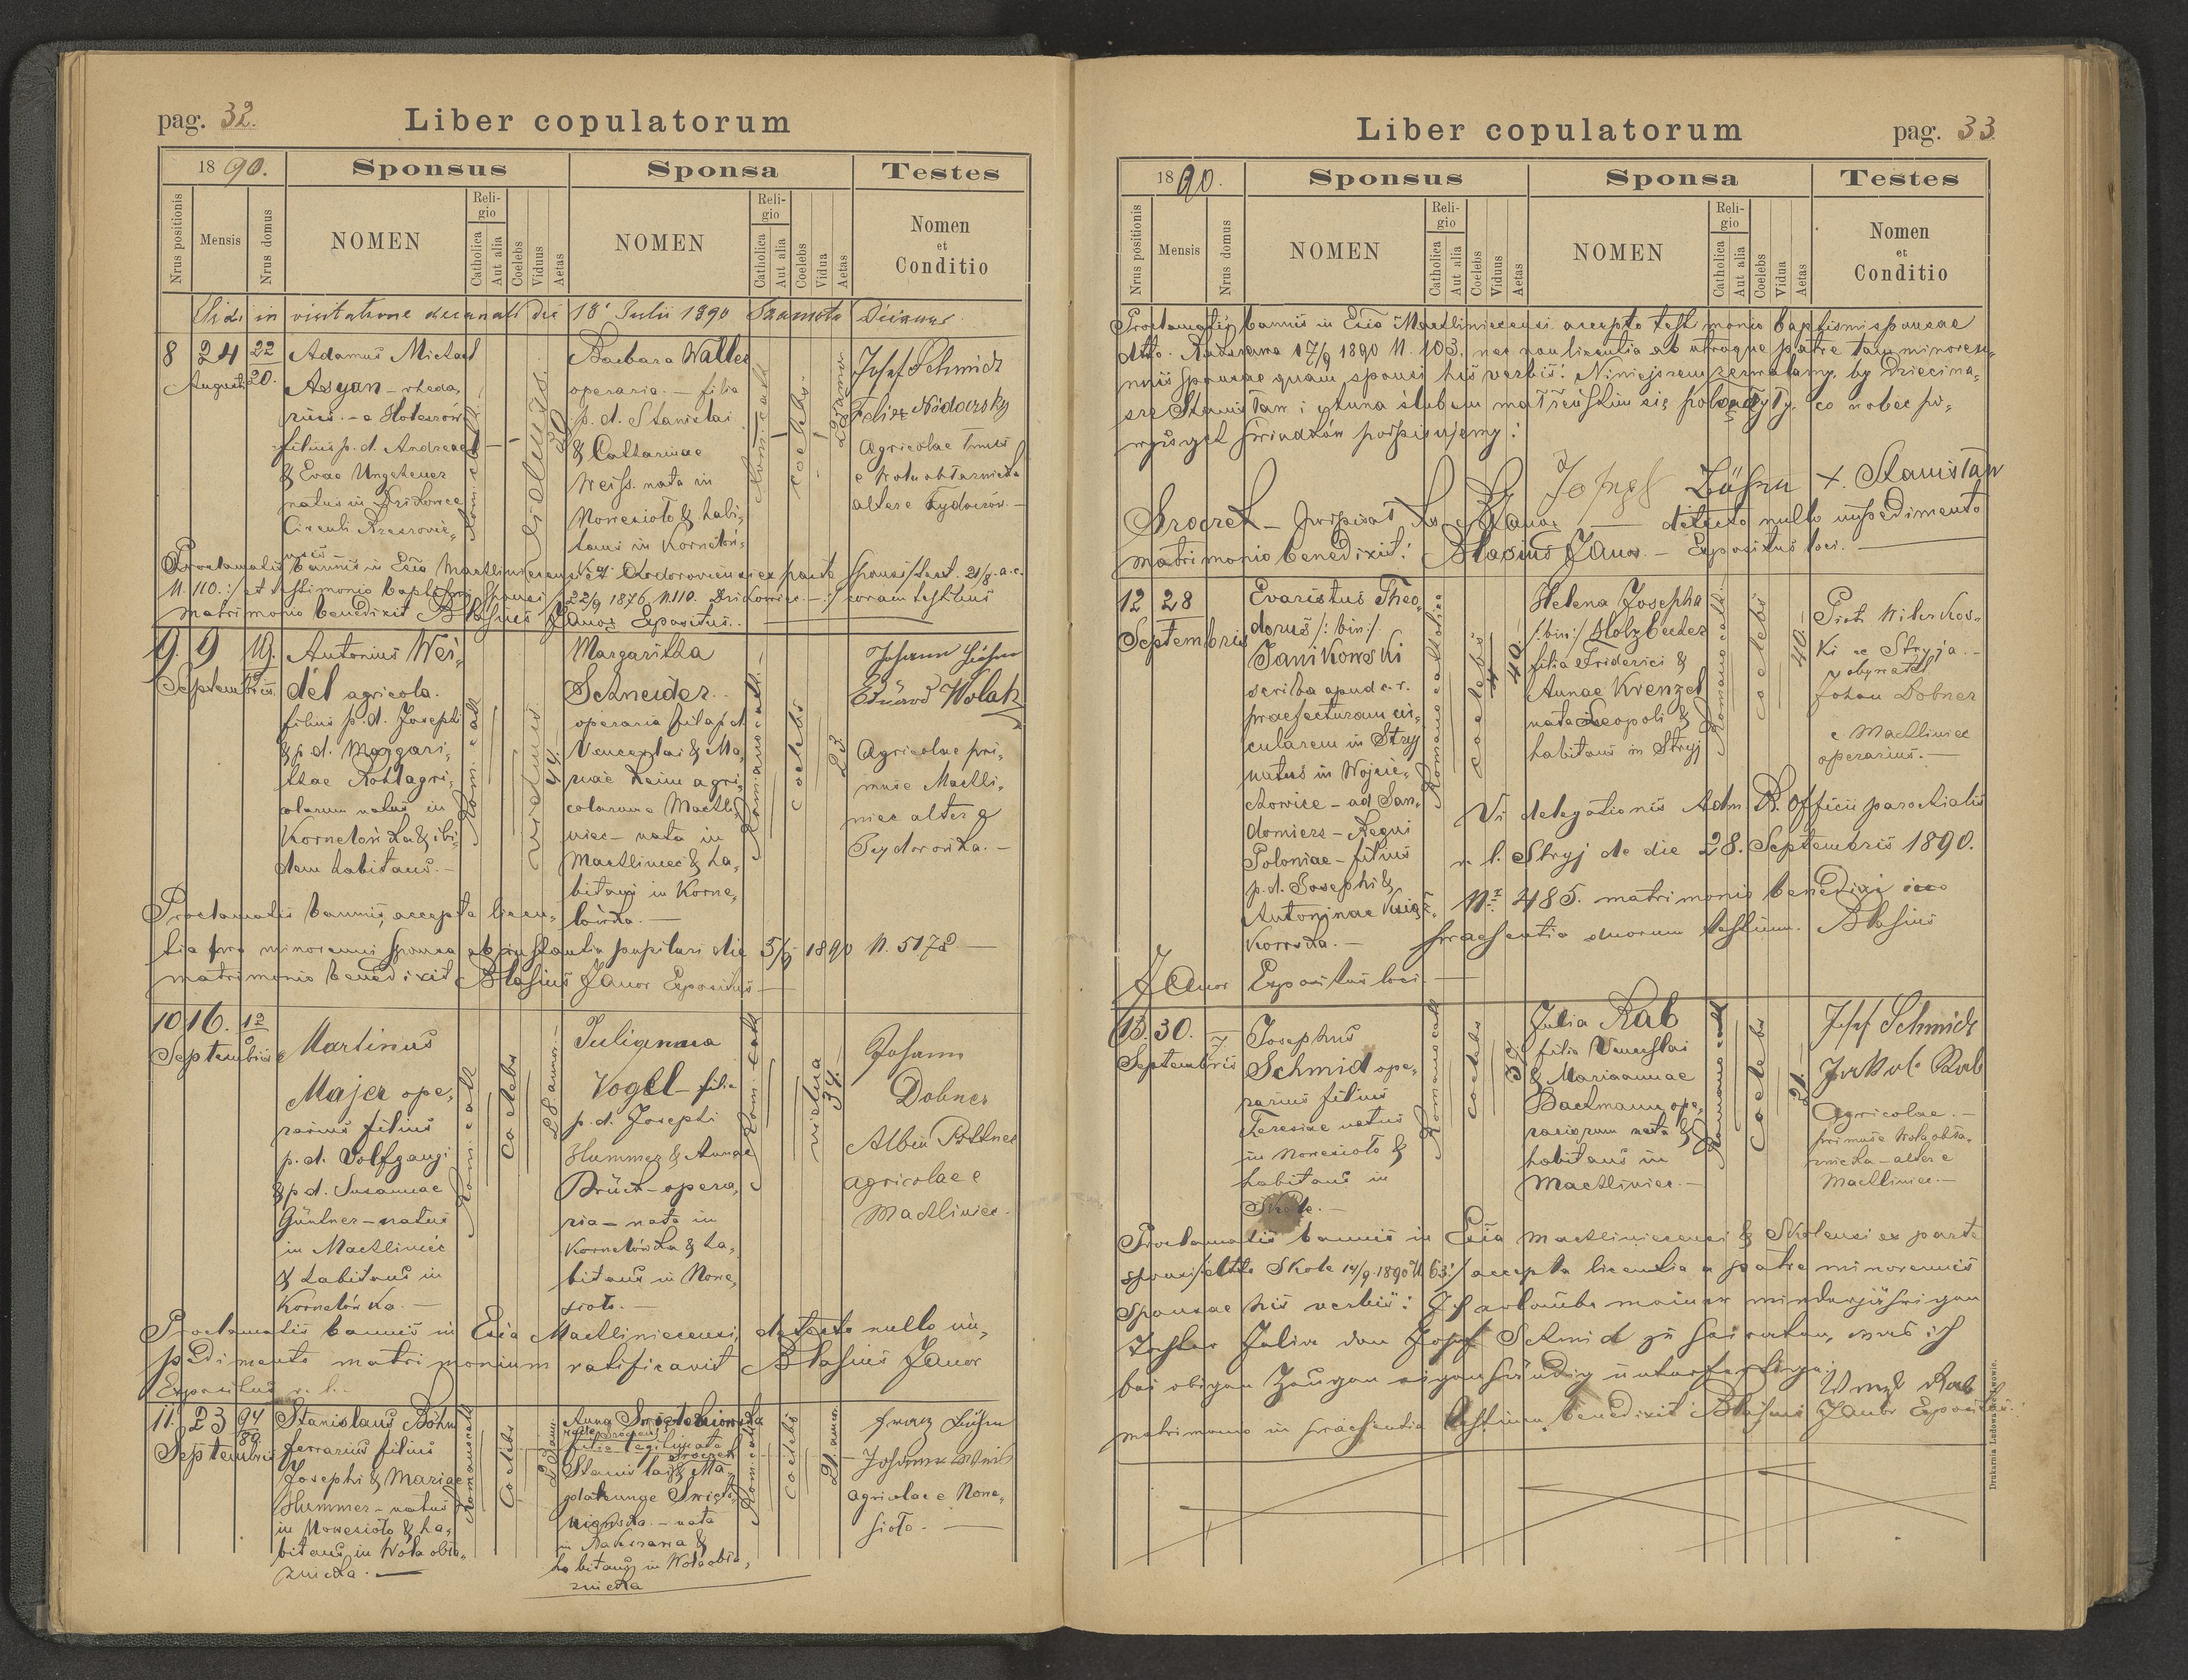 pag. 32.
Liber copulatorum
1890.
Sponsus
Sponsa
Testes
Nrus positionis
Mensis
Nrus domus
NOMEN
Religio
Catholica
Aut alia
Coelebs
Viduus
Aetas
NOMEN
Religio
Catholica
Aut alia
Coelebs
Vidua
Aetas
Nomen
et
Conditio
Vidi in visitatione decanali die 18. Julii 1890
8
24
Augusti
22
20.
Adamus Michael
filius p. d. Andreae
& Evae Ungeheuer
natus in
Rom. cath.
viduus
50
Barbara Walter
operaria. – filia
p. d. Stanislai
& Catharinae
Weiss. nata in
Nowesioło & habi-
tans in Kornelów-
ka
Rom. cath.
coelebs
Josef Schmidt
Felix Nidorsky
Agricolae
e Wola obłaznicka
alter e Żydaczów. –
Proclamatis bannis in Ecia Machliniecensi et Chodoroviensi ex parte sponsi
N. 110. :/ et testimonio baptismi sponsi / 22/9 1876 N. 110. coram testibus
matrimonio benedixit Blasius Jauor Expositus.
9.
9
Septembris
19.
Antonius Wei-
del agricola.
filius p. d. Josephi
& p. d. Margari-
thae Rohl agri-
colarum natus in
Kornelówka & ibi-
dem habitans. –
Rom. cath.
viduus
44
Margaritha
Schneider.
operaria filia p. d.
Venceslai & Ma-
riae Heim agri-
colarum e Machli-
niec – nata in
Machliniec & ha-
bitans in Korne-
lówka. –
Romano cath. –
coelebs
23.
Johann Böhm
Eduard Wolak
Agricolae pri-
mus e Machli-
niec alter e
Proclamatis bannis, accepta licen-
tia pro minorenni sponsa ab instantia pupilari die 5/9 1890 N. 5178. –
matrimonio benedixit Blasius Jauor Expositus –
10
16.
Septembris
12
Martinus
Majer ope-
rarius filius
p. d. Volfgangi
& p. d. Susannae
Güntner – natus
in Machliniec
& habitans in
Kornelówka. –
Rom. cath
coelebs
28. annor. –
Julianna
Vogel – filia
p. d. Josephi
Hummer & Annae
Brück – opera-
ria – nata in
Kornelówka & ha-
bitans in Nowe-
sioło. –
Rom. cath
vidua
34. –
Johann
Dobner
Albin Pöllner
agricolae e
Machliniec.
Proclamatis bannis in Ecia Machliniecensi, detecto nullo im-
pedimento matrimonium ratificavit Blasius Jauor
Expositus r. l.
11.
23
Septembris
94
Stanislaus Böhm
ferrarius filius
Josephi & Mariae
Hummer – natus
in Nowesioło & ha-
bitans in Wola obła-
znicka. –
Romano cath
coelebs
Anna
filia legitimata
Stanislai & Ma-
gdalenae
nata
in
habitans in Wola obła-
znicka
Rom. cath.
coelebs
21 annor.
Franz Böhm
Johann Weiß
agricolae e Nowe-
sioło. –
Liber copulatorum
pag. 33
1890.
Sponsus
Sponsa
Testes
Nrus positionis
Mensis
Nrus domus
NOMEN
Religio
Catholica
Aut alia
Coelebs
Viduus
Aetas
NOMEN
Religio
Catholica
Aut alia
Coelebs
Vidua
Aetas
Nomen
et
Conditio
Proclamatis bannis in Ecia Machliniecensi. accepto testimonio baptismi sponsae
17/9 1890 N. 103. nec non licentia ab utroque patre tam minoren-
nis sponsae quam sponsi his verbis: Niniejszem zezwalamy, by dzieci na-
sze Stanisław i Anna ślubem małżeńskim się połączyły, co wobec po-
wyższych świadków podpisujemy:
Josef Böhm + Stanisław
Sroczek – podpisał ks. Jauor – detecto nullo impedimento
matrimonio benedixit: Blasius Jauor. – Expositus loci. –
12
28
Septembris
Evaristus Theo-
dorus /: bin :/
Janikowski
scriba apud c. r.
praefecturam cir-
cularem in Stryj
natus in Wojcie-
chowice – ad San-
domierz – Regni
Poloniae – filius
p. d. Josephi &
Antoninae
Romano catholica
coelebs
40.
Helena Josepha
/: bin :/ Holzbecher
filia Friderici &
Annae Krenzel
nata Leopoli &
habitans in Stryj
Romano cath.
coelebs
40. –
Piotr
ki ze Stryja. –
obywatel
Johan Dobner
e Machliniec
operarius. –
Vi delegationis Adm. R. Officii parochialis
r. l. Stryj de die 28. Septembris 1890.
Nr. 485. matrimonio benedixi in
praesentia duorum testium. Blasius
Jauor Expositus loci. –
13.
30.
Septembris
7
Josephus
Schmid ope-
rarius filius
Teresiae natus
in Nowesioło &
habitans in
Skole. –
Romano cath
coelebs
32
Julia Rab
filia Venceslai
& Mariannae
Bachmann ope-
rariorum nata &
habitans in
Machliniec. –
Romano cath
coelebs
21. –
Josef Schmidt
Jakob Rab
Agricolae. –
primus e Wola obła-
znicka – alter e
Machliniec. –
Proclamatis bannis in Ecia Machliniecensi & Skolensi ex parte
sponsi /: ddto Skole 14/9 1890 N. 63 :/ accepta licentia a patre minorennis
sponsae his verbis: Ich erlaube meiner minderjährigen
Tochter Julia den Josef Schmid zu heiraten, was ich
bei obigen Zeugen eigenhändig unterfertige: Wenzl Rab
matrimonio in praesentia testium benedixit Blasius Jauor Expositus.
Drukarnia Ludowa we Lwowie.